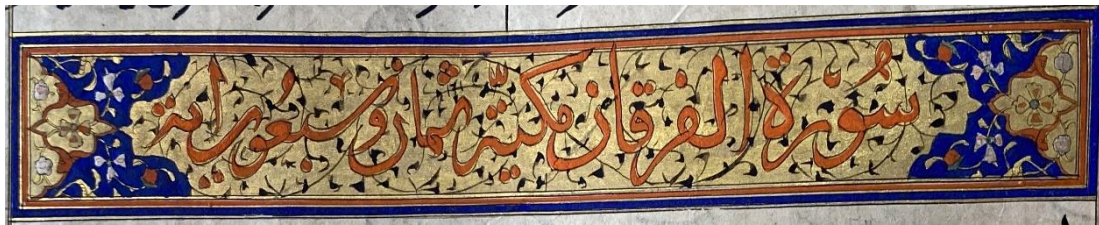 سُورَة الفرقان مكيّة ثمان وسبعُون اية